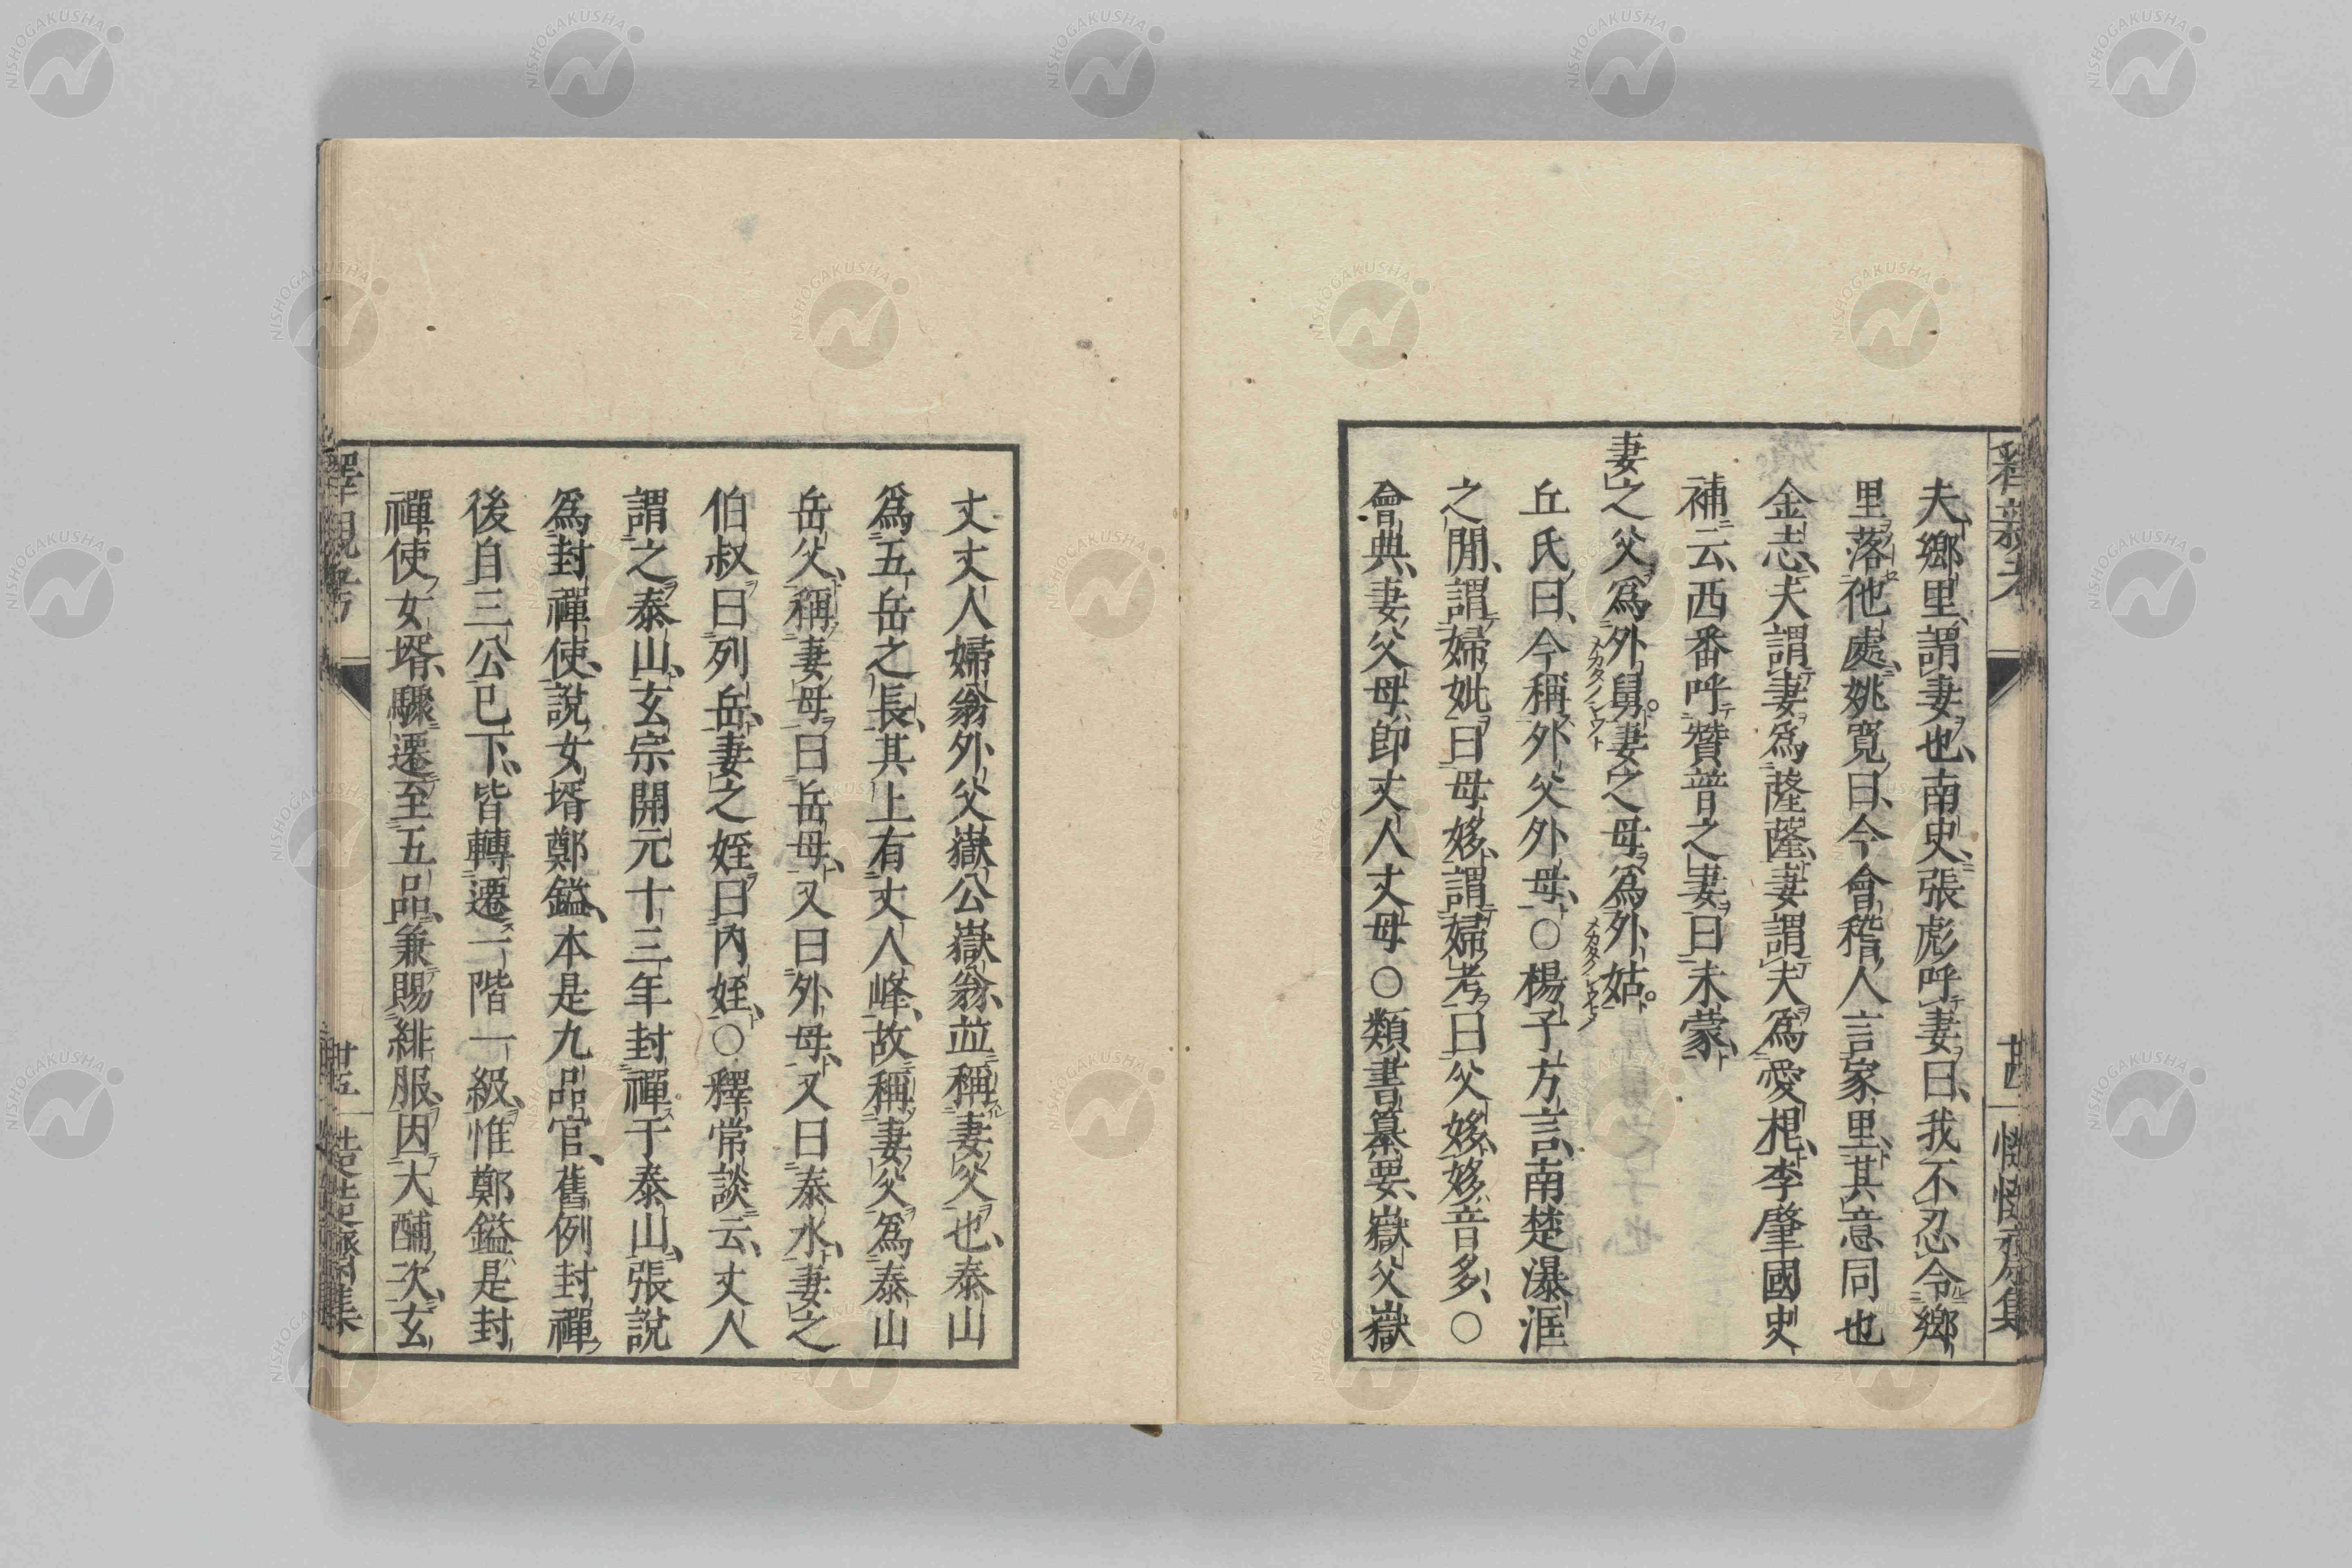 夫鄉里、謂妻也、南史、張彪呼妻曰、我不忍令鄉
里落他處、姚寬曰、今會稽人言家里、其意同也
金志、夫謂妻爲薩薩、妻謂夫爲愛根、李肇國史
補云、西番呼贊普之妻曰末蒙、
妻之父爲外舅。妻之母爲外姑。
丘氏曰、今稱外父外母、○楊子方言、南楚瀑洭
之閒、謂婦妣曰母姼、謂婦考曰父姼、姼音多、○
會典、妻父母、即丈人丈母○類書纂要、嶽父嶽
丈丈人婦翁外父嶽公嶽翁、並稱妻父也、泰山
爲五岳之長、其上有丈人峰、故稱妻父爲泰山
岳父、稱妻母曰岳母、又曰外母、又曰泰水、妻之
伯叔曰列岳、妻之姪曰內姪、○釋常談云、丈人
謂之泰山、玄宗開元十三年封禪于泰山、張說
爲封禪使、說女壻鄭鎰、本是九品官、舊例封禪
後自三公已下、皆轉遷一階一級、惟鄭鎰是封
禪使女壻、驟遷至五品、兼賜緋服、因大酺次、玄
釋親考